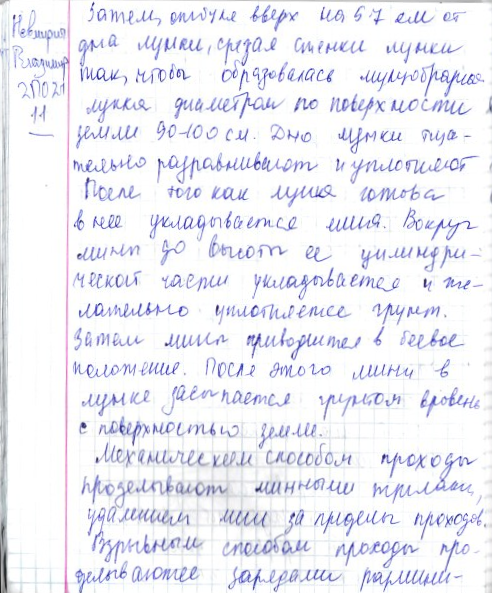 Невмирич
Владимир
2ПО21
11
Затем, отступя вверх на 5-7 см от
дна лунки, срезая стенки лунки
так, чтобы образовалась
лунка диаметром по поверхности
земли 90-100 см. Дно лунки тща-
тельно разравнивают и уплотняют
После того как лунка готова
в нее укладывается мина. Вокруг
мины до высоты ее цилиндри-
ческой части укладывается и тща-
тельно уплотняется грунт.
Затем мина приводится в боевое
положение. После этого мина в
лунке засыпается грунтом вровень
с поверхностью земли.
Механическим способом проходы
проделывают минными тралами,
удалением мин за пределы проходов.
Взрывным способом проходы про-
делываются зарядами размини-